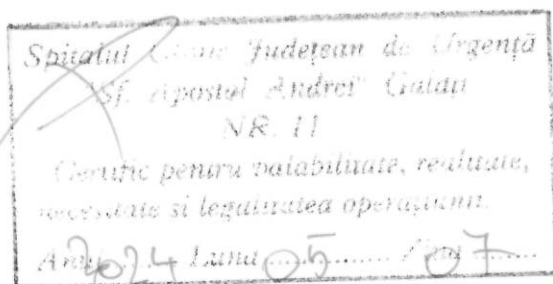 Spitalul Clinic Județean de Urgență
"Sf. Apostol Andrei" Galați
NR. 11
Certific pentru valabilitate, realitate,
necesitate si legalitatea operațiunii.
Anul 2024 Luna 05 Ziua 07